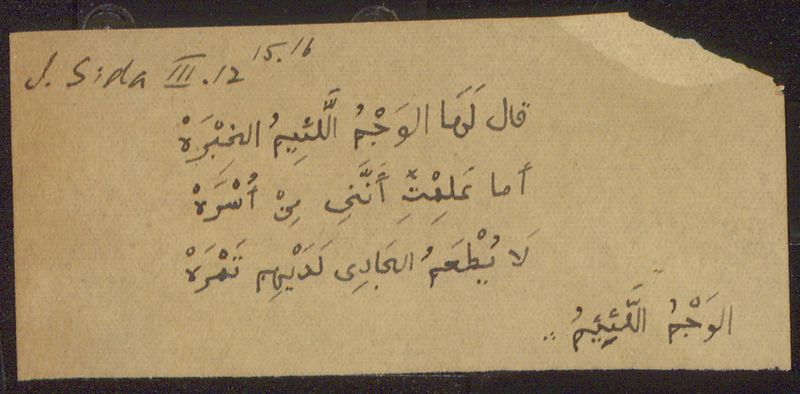 J. Sida III.12 15.16
قال لَهَا الوَجْمُ اللَّئِيمُ الخِبْرَهْ
أما عَلِمْتِ أَنَّنِى مِنْ أُسْرَهْ
لَا يُطْعَمُ الجَادِى لَدَيْهِم تَمْرَهْ
الوَجْمُ اللَّئِيمُ ..